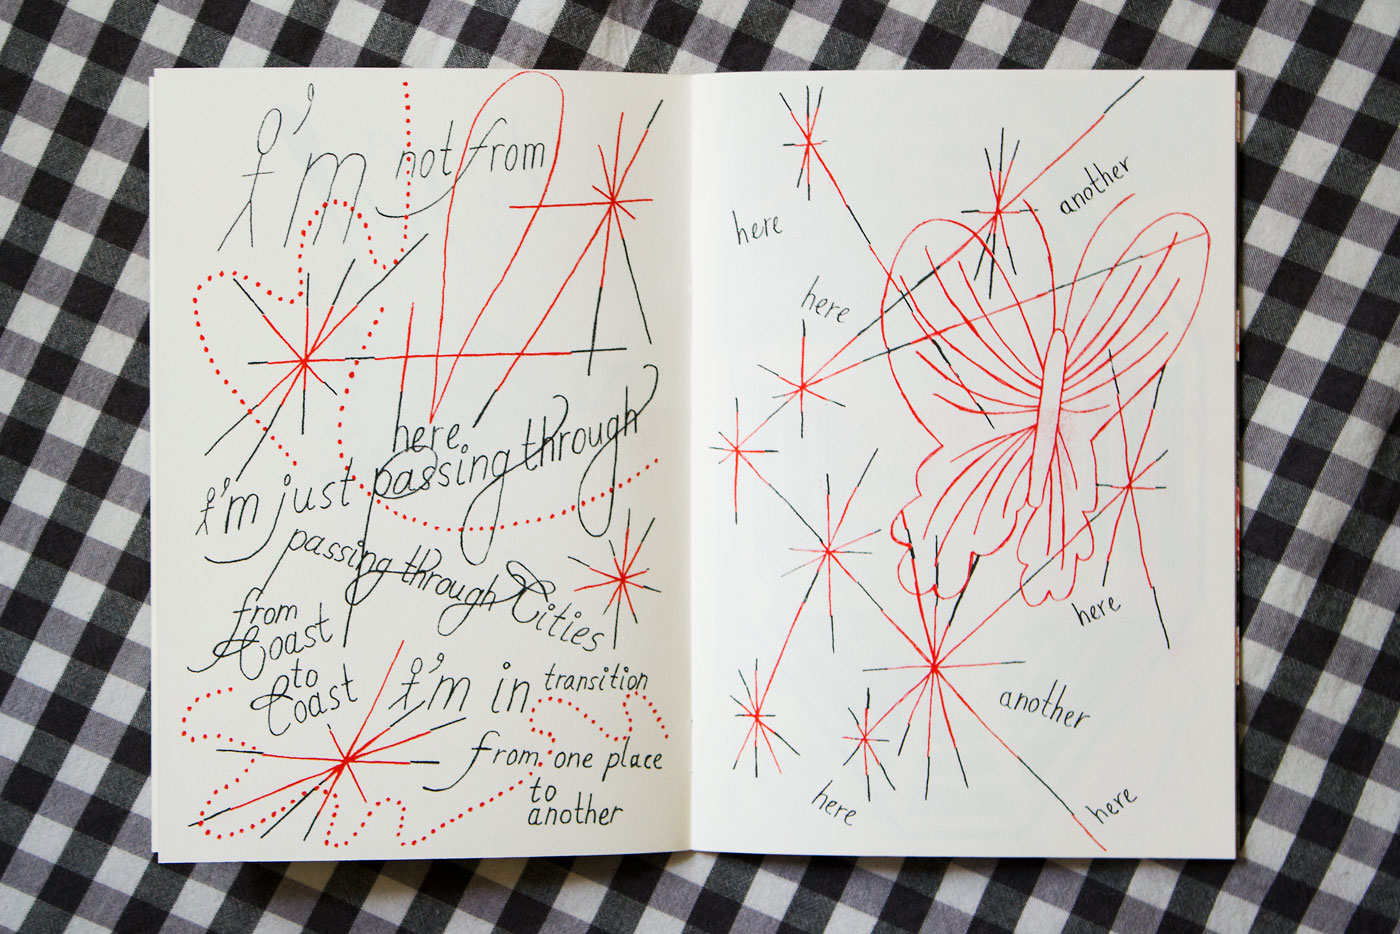 I'm not from
here.
I'm just passing through
passing through Cities
from
Coast
to
Coast
I'm in transition
from one place
to
another
here
another
here
here
another
here
here